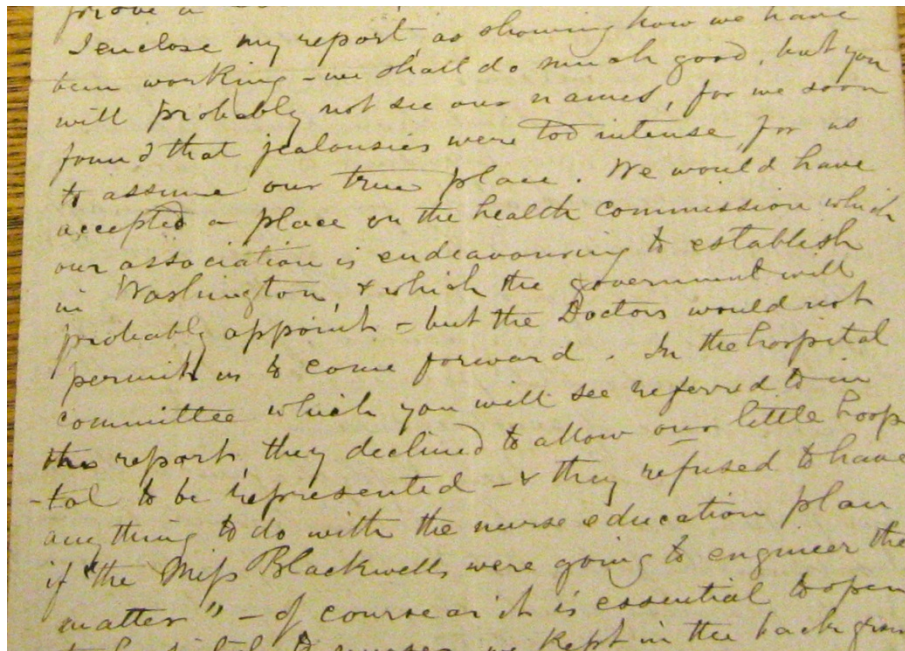 prove a
I enclose my report, as showing how we have
been working - we shall do much good, but you
will probably not see our names, for we soon
found that jealousies were too intense for us
to assume our true place. We would have
accepted a place on the health commission which
our association is endeavouring to establish
in Washington, & which the government will
probably appoint - but the Doctors would not
permit us to come forward. In the hospital
committee which you will see referred to in
the report, they declined to allow our little hosp
-tal to be represented - & they refused to have
anything to do with the nurse education plan
if "the Miss Blackwells were going to engineer the
matter" - of course as it is essential to open
we kept in the back groun